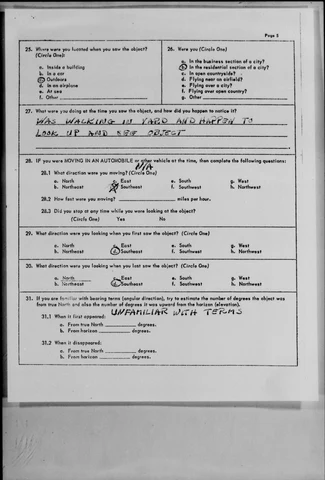 Page 3
25. Where were you located when you saw the object?
(Circle One):
a. Inside a building
b. In a car
c. Outdoors
d. In an airplane
e. At sea
f. Other
26. Were you (Circle One)
a. In the business section of a city?
b. In the residential section of a city?
c. In open countryside?
d. Flying near an airfield?
e. Flying over a city?
f. Flying over open country?
g. Other
27. What were you doing at the time you saw the object, and how did you happen to notice it?
WAS WALKING IN YARD AND HAPPEN TO
LOOK UP AND SEE OBJECT
28. IF you were MOVING IN AN AUTOMOBILE or other vehicle at the time, then complete the following questions:
N/A
28.1 What direction were you moving? (Circle One)
a. North c. East e. South g. West
b. Northeast d. Southeast f. Southwest h. Northwest
28.2 How fast were you moving? miles per hour.
28.3 Did you stop at any time while you were looking at the object?
(Circle One) Yes No
29. What direction were you looking when you first saw the object? (Circle One)
a. North c. East e. South g. West
b. Northeast d. Southeast f. Southwest h. Northwest
30. What direction were you looking when you last saw the object? (Circle One)
a. North c. East e. South g. West
b. Northeast d. Southeast f. Southwest h. Northwest
31. If you are familiar with bearing terms (angular direction), try to estimate the number of degrees the object was
from true North and also the number of degrees it was upward from the horizon (elevation).
UNFAMILIAR WITH TERMS
31.1 When it first appeared:
a. From true North degrees.
b. From horizon degrees.
31.2 When it disappeared:
a. From true North degrees.
b. From horizon degrees.